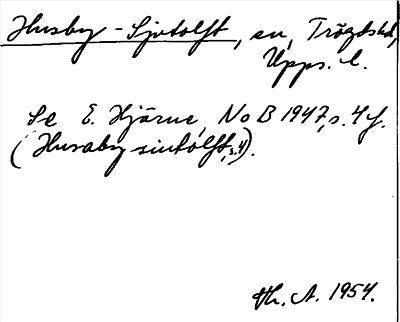 Husby-Sjutolft, sn, Trögds hd,
Upps. l.
Se E. Hjärne, NoB 1947, s. 4 f.
(Husaby siutolft, s. 4).
Th. A. 1954.